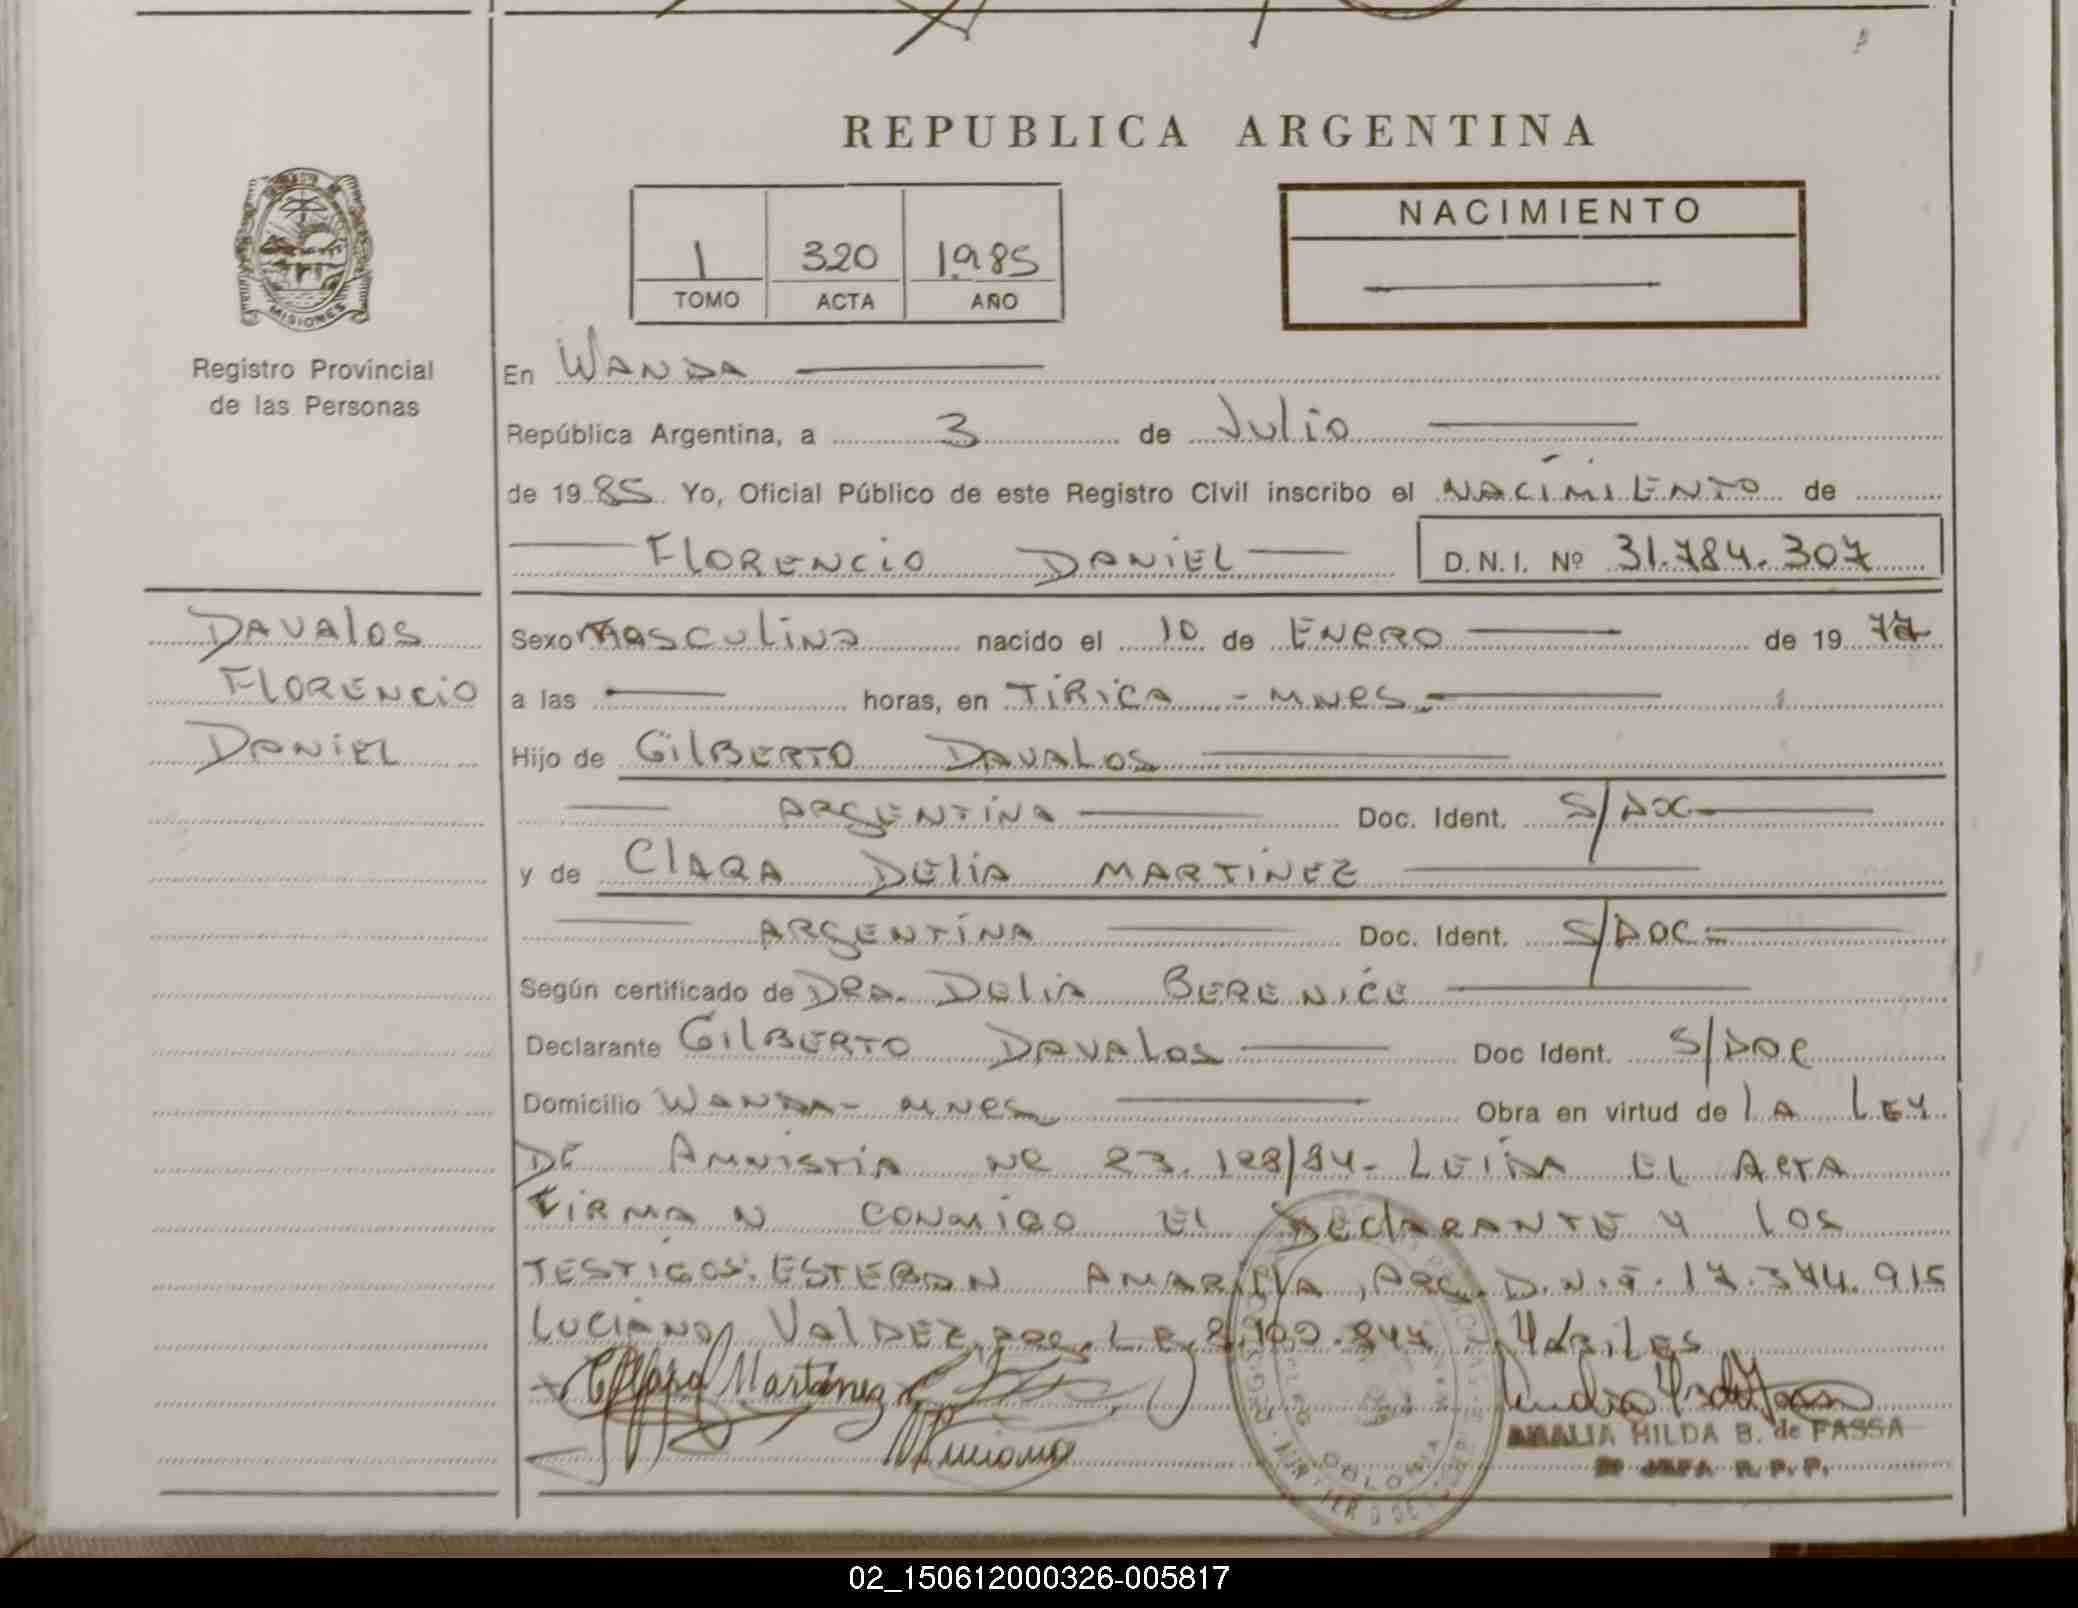 REPUBLICA ARGENTINA
MISIONES
Registro Provincial
de las Personas
1 320 1985
TOMO ACTA AÑO
NACIMIENTO
En WANDA
República Argentina, a 3 de Julio
de 1985 Yo, Oficial Público de este Registro Civil inscribo el NACIMIENTO de
FLORENCIO DANIEL D.N.I. Nº 31.784.307
DAVALOS
FLORENCIO
DANIEL
Sexo MASCULINO nacido el 10 de ENERO de 19
a las horas, en TIRICA - MNES.
Hijo de GILBERTO DAVALOS
ARGENTINA Doc. Ident. S/DOC
y de CLARA DELIA MARTINEZ
ARGENTINA Doc. Ident. S/DOC-
Según certificado de DRA. DELIA BERENICE
Declarante GILBERTO DAVALOS Doc Ident. S/DOC
Domicilio WANDA- MNES Obra en virtud de LA LEY
DE AMNISTIA NR 23.128/84- LEIDA EL ACTA
FIRMAN CONMIGO EL DECLARANTE Y LOS
TESTIGOS: ESTEBAN AMARILLA, ARG. D.N.I. 17.374.915
LUCIANO VALDEZ, ARG. L.E. HABILES
Martinez
Luciano
COLONIA
AMALIA HILDA B. de FASSA
JEFA R.P.P.
02_150612000326-005817